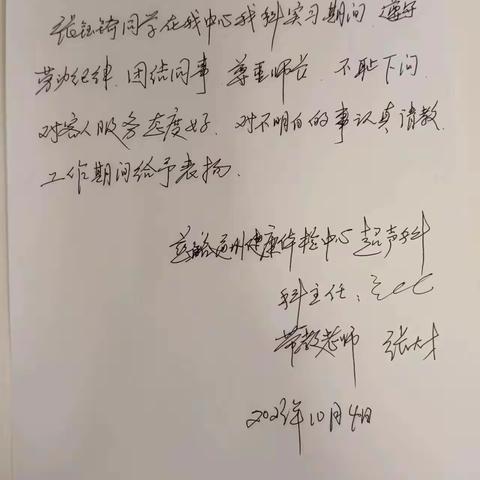 张钰锜同学在我中心我科实习期间,遵守
劳动纪律,团结同事,尊重师长,不耻下问,
对客人服务态度好,对不明白的事认真请教,
工作期间给予表扬.
通州健康体检中心超声科
科主任:
带教老师 张大才
2023年10月4日